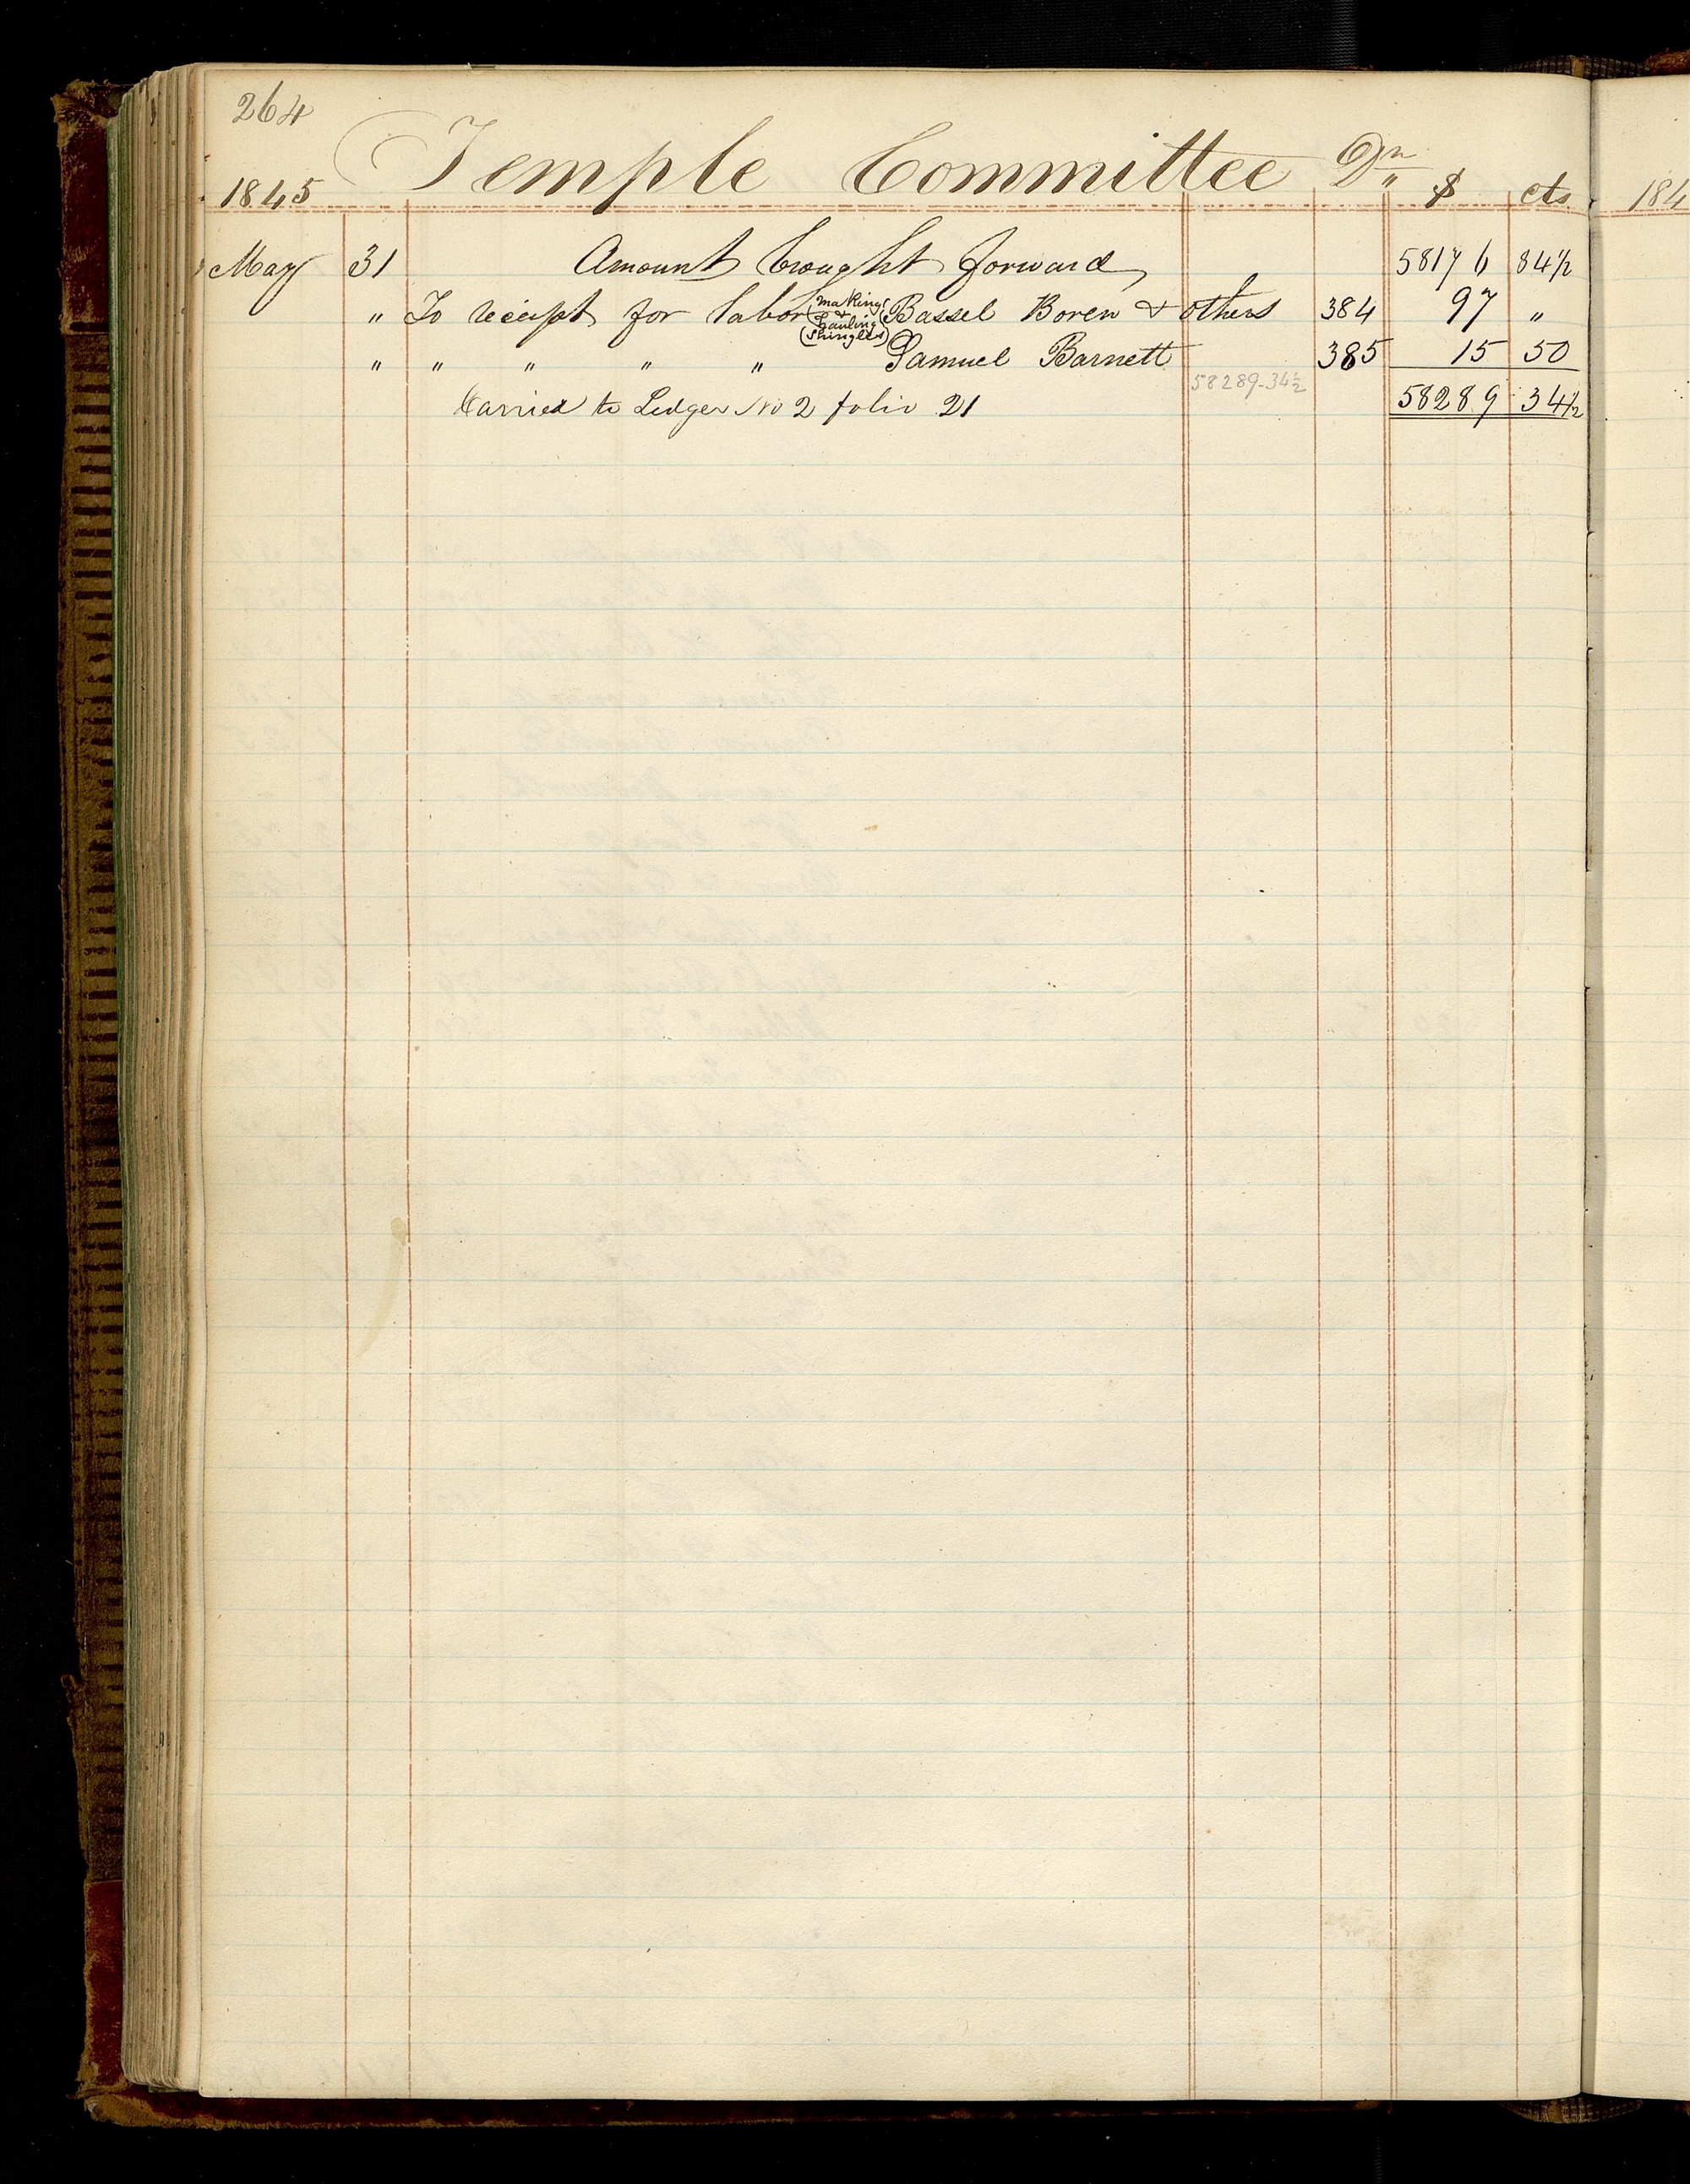 264
Temple Committee Dr.
1845 $ cts.
May 31 Amount brought forward 58176 84½
" To receipt for labor (making & hauling shingles) Bassel Boren & others 384 97 "
" " " " " Samuel Barnett 385 15 50
58289-34½
Carried to Ledger No 2 folio 21 58289 34½
184